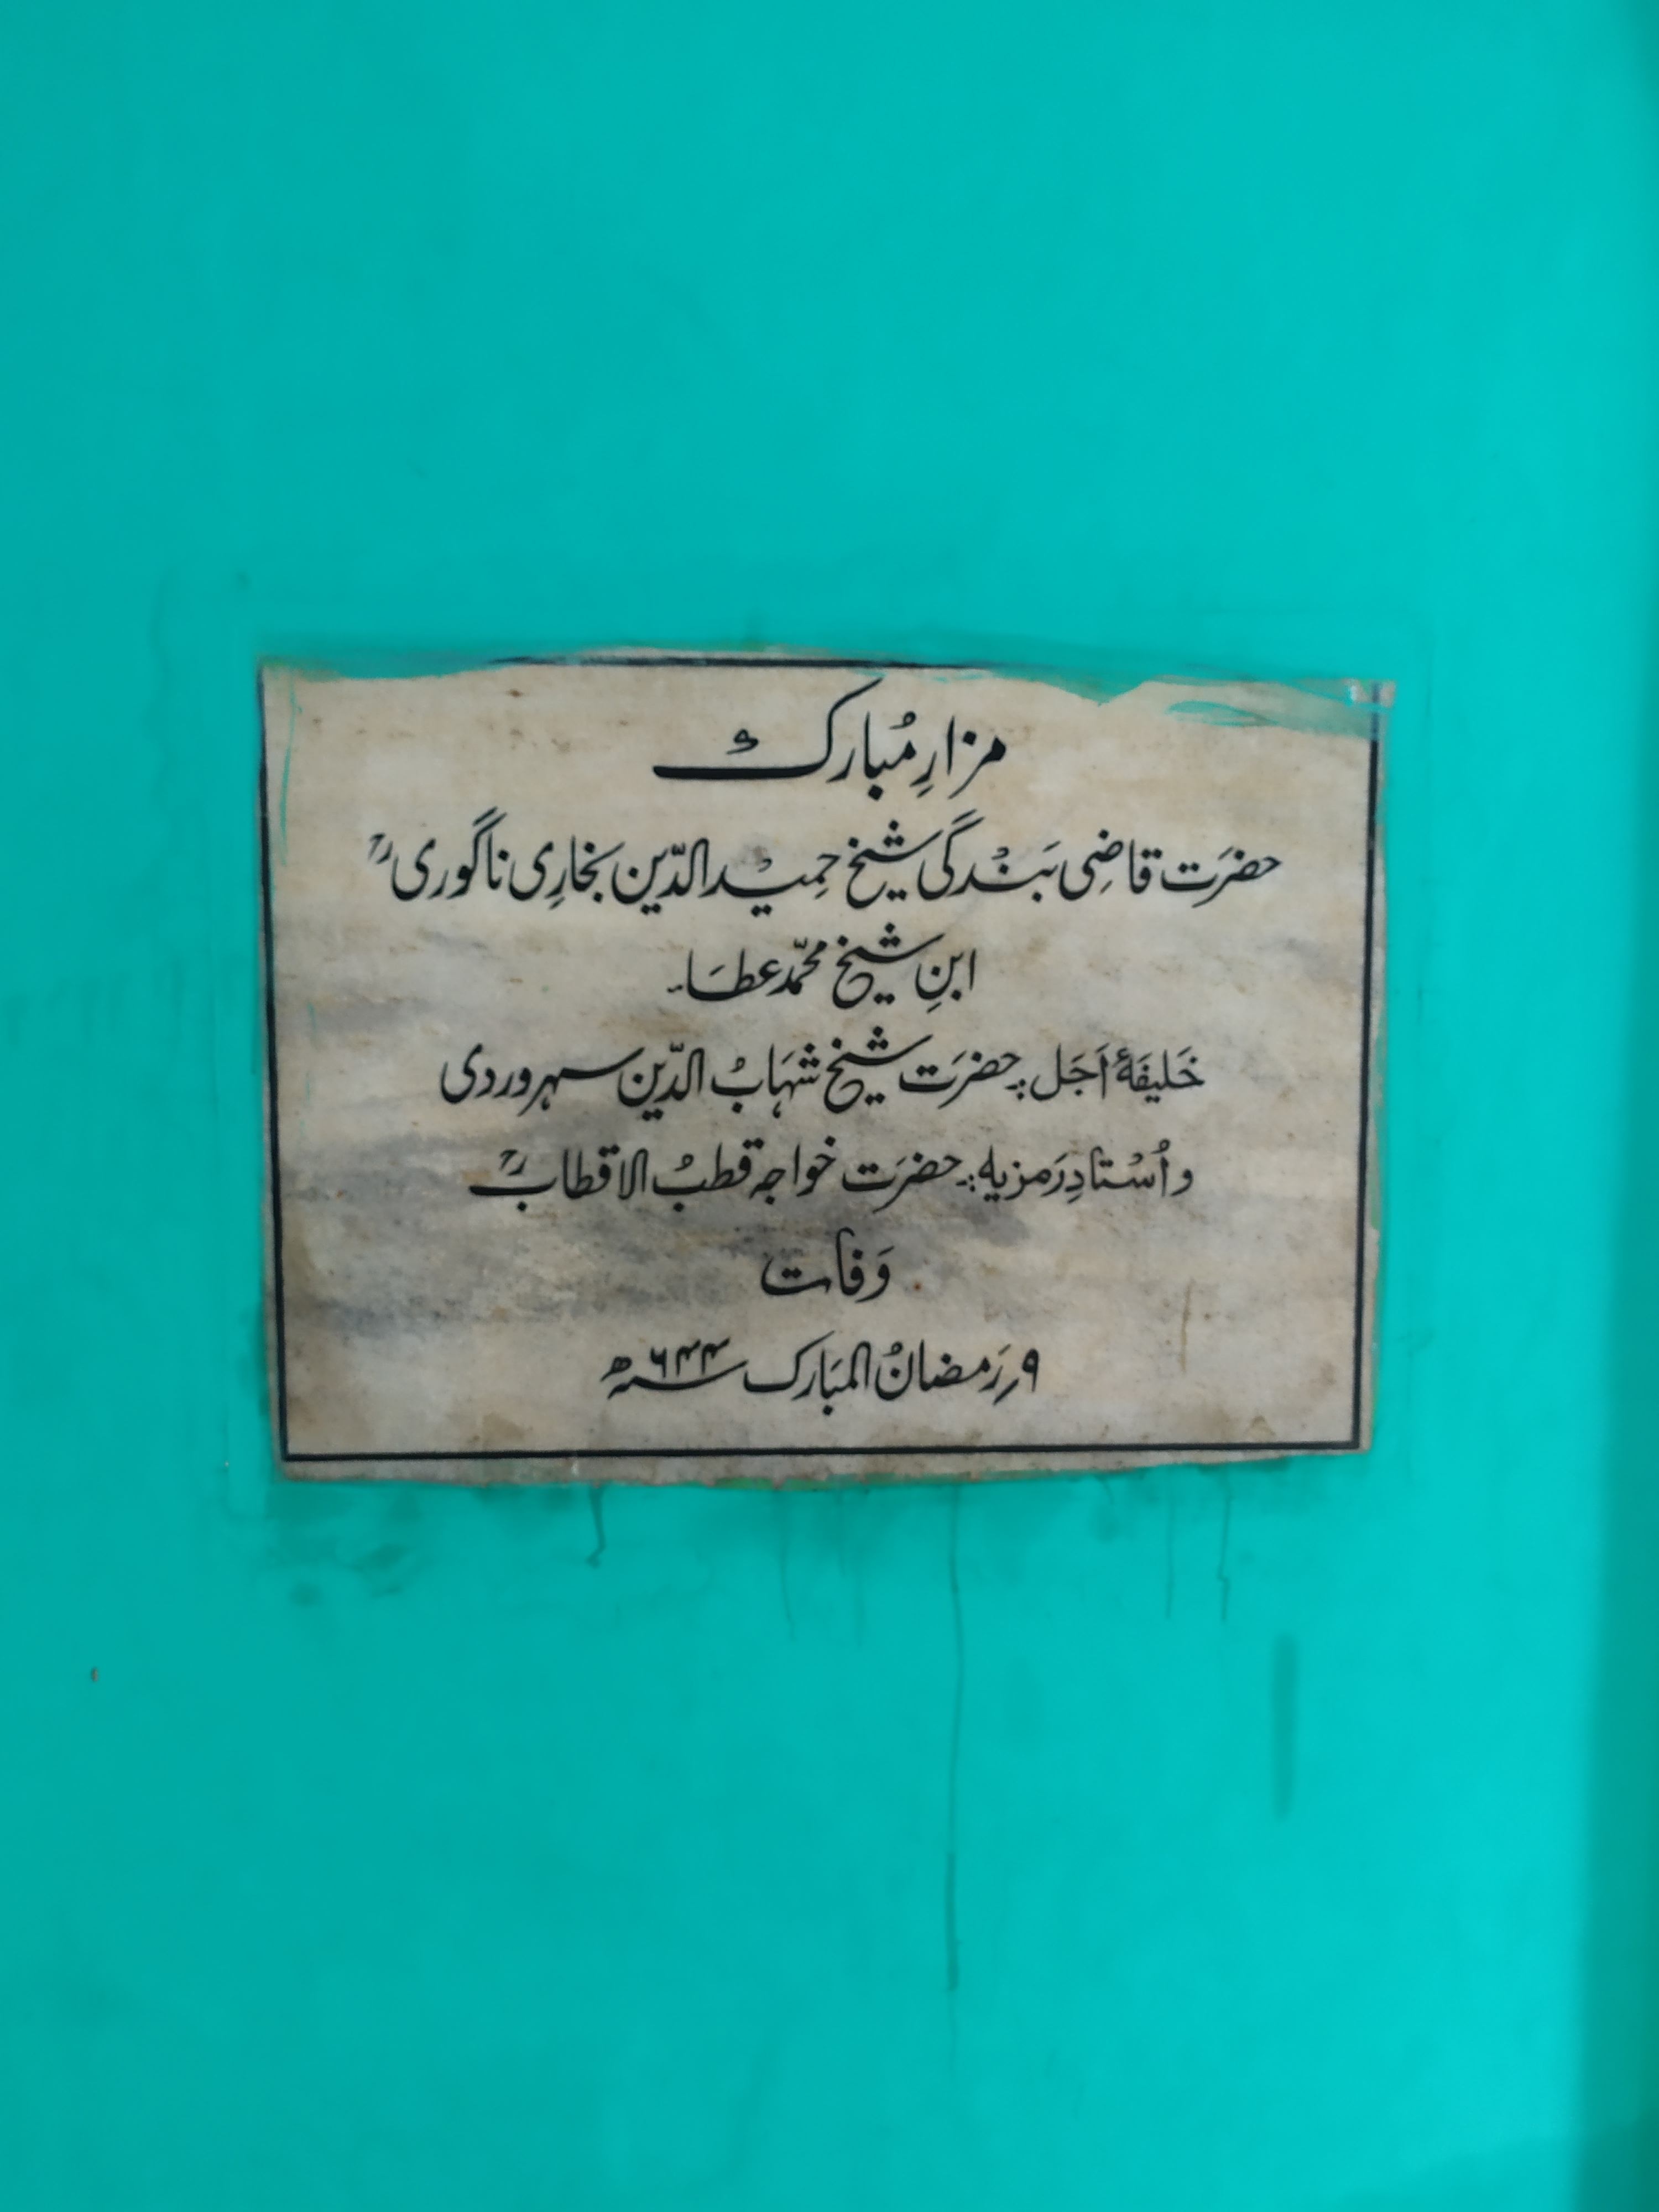 مزارِ مُبارک
حضرَت قاضِی بَندگی شیخ حمِید الدّین بخارِی ناگوری ؒ
ابنِ شیخ محمّد عطَاء
خَلیفَۂ اَجَل حضرَت شیخ شہَابُ الدّین سہروردی
و اُسْتادِ رَمزیہ حضرَت خواجہ قطبُ الاقطاب ؒ
وَفات
۹ رَمضانُ المبَارک سنہ ۶۴۴ھ